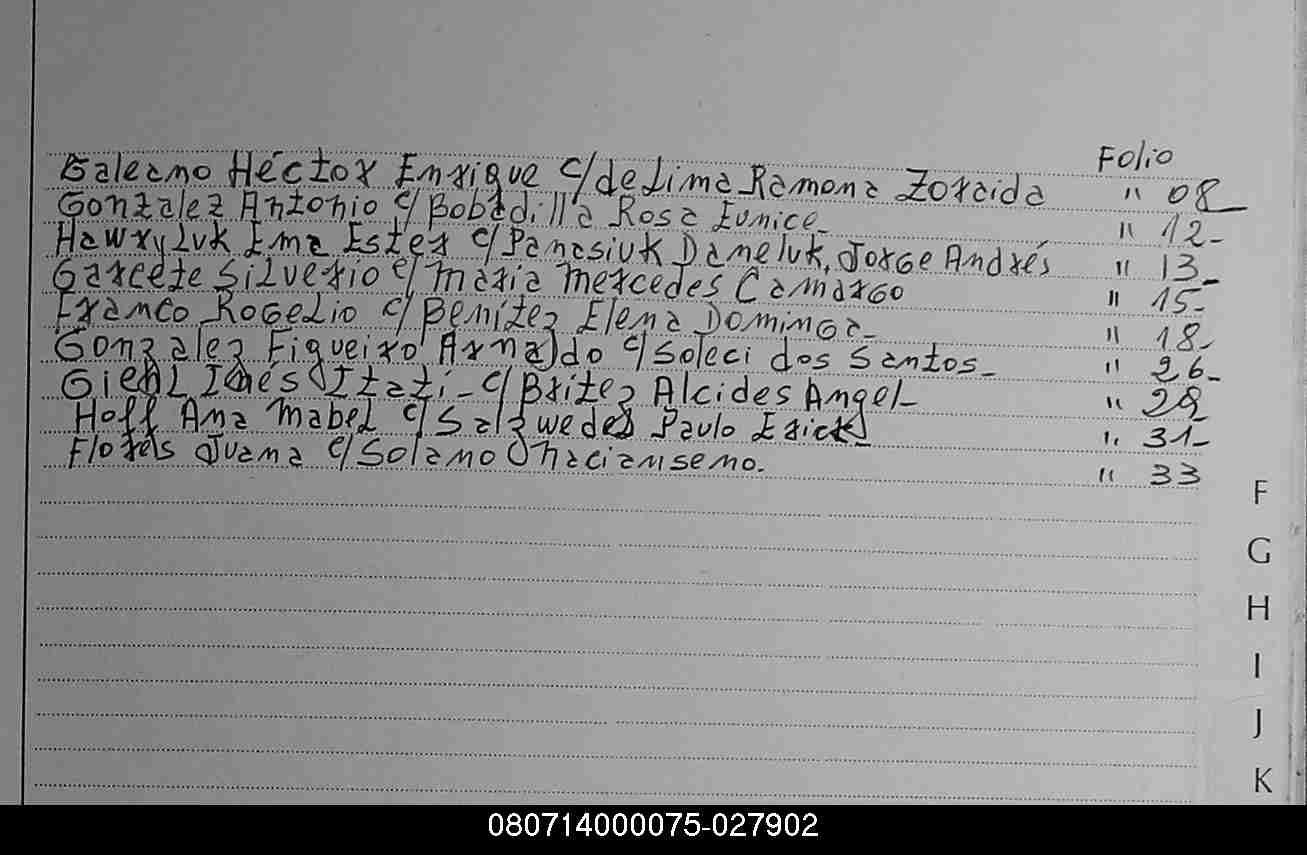 Folio
Galeano Héctor Enrique c/ de Lima Ramona Zoraida " 08
Gonzalez Antonio c/ Bobadilla Rosa Eunice_ " 12_
Hawryluk Ema Ester c/ Panasiuk Daneluk, Jorge Andrés " 13_
Garcete Silverio c/ Maria Mercedes Camargo " 15_
Franco Rogelio c/ Benítez Elena Dominga_ " 18_
Gonzalez Figueiro Arnaldo c/ Soleci dos Santos_ " 26_
Giehl Inés Itatí_ c/ Britez Alcides Angel_ " 28
Hoff Ana Mabel c/ Salzwedel Paulo Erick_ " 31_
Juana c/ Solano " 33
F
G
H
I
J
K
080714000075-027902